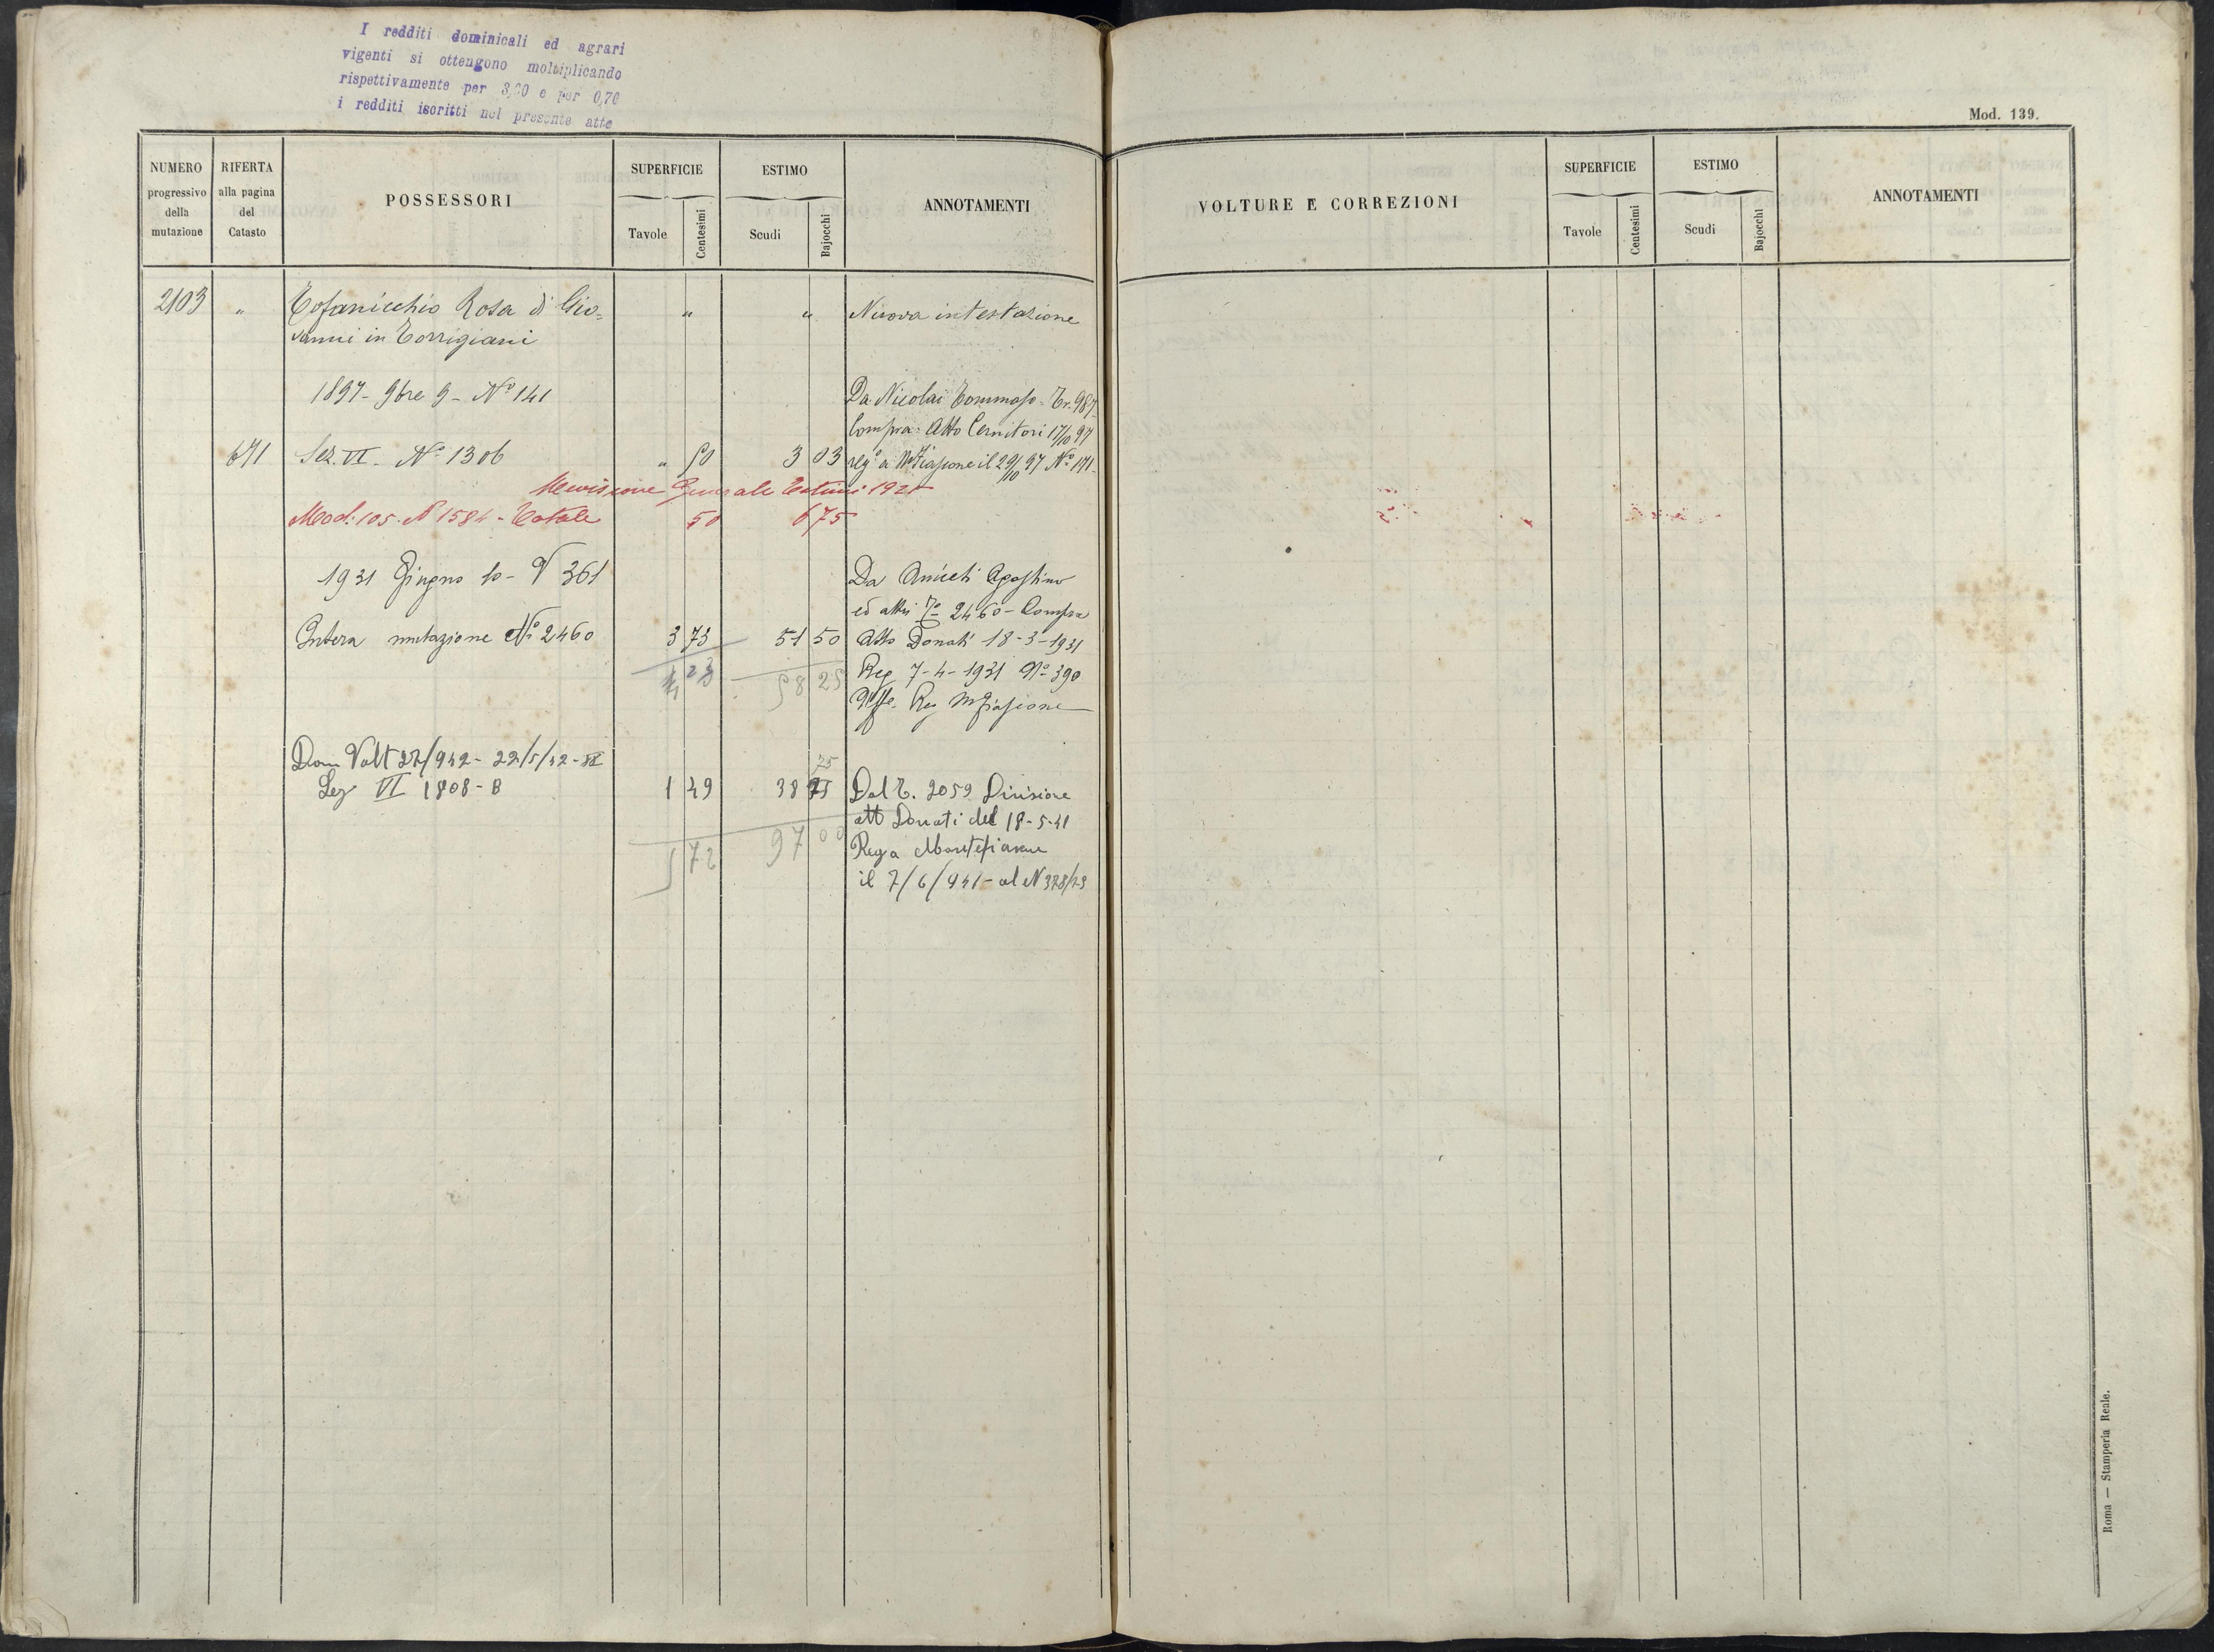 I redditi dominicali ed agrari
vigenti si ottengono moltiplicando
rispettivamente per 3,00 e per 0,70
i redditi iscritti nel presente atto
Mod. 139.
NUMERO progressivo della mutazione
RIFERTA alla pagina del Catasto
POSSESSORI
SUPERFICIE
Tavole Centesimi
ESTIMO
Scudi Bajocchi
ANNOTAMENTI
VOLTURE E CORREZIONI
SUPERFICIE
Tavole Centesimi
ESTIMO
Scudi Bajocchi
ANNOTAMENTI
2103 " Tofanicchio Rosa di Gio= " " Nuova intestazione
vanni in Torrigiani
1897 - 9bre 9 - Nº 141 Da Nicolai Tommaso - Tr. 987
Compra: Atto Cernitori 17/10 97
671 Sez. VI - Nº 1306 " 50 3 03 regº a Mtefiascone il 29/10 97 Nº 171
Revisione Generale Estimi 1925
Mod: 105. N 1584 - Totale 50 675
1931 Giugno 10 - N 361 Da Aniceti Agostino
ed altri 2460 - Compra
Intera mutazione Nº 2460 3 73 51 50 Atto Donati 18-3-1931
4 23 58 25 Reg 7-4-1931 Nº 390
Uffe. Reg Mfiascone
Dom Volt 27/942 - 22/5/42 - XX
75
Sez VI 1808 - B 1 49 38 75 Dal T. 2059 Divisione
att Donati del 18-5-41
5 72 97 00 Reg a Montefiascone
il 7/6/941 - al N 378/23
Roma — Stamperia Reale.